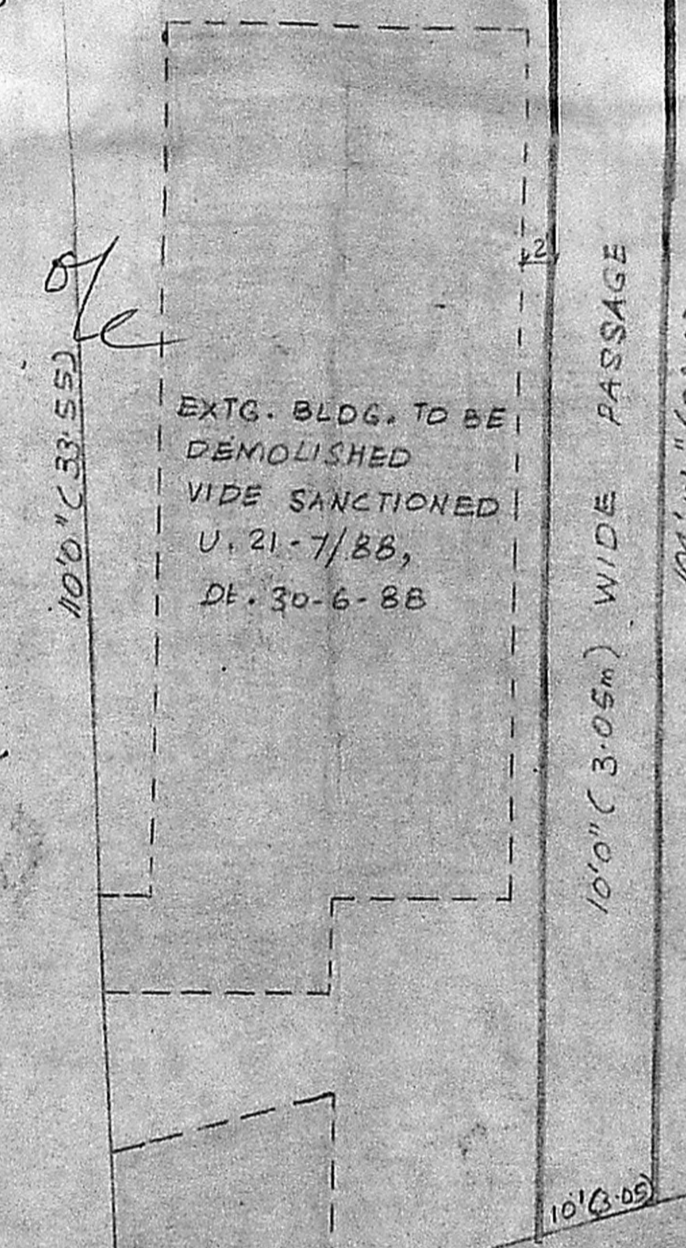 2'
110'0"(33.55)
EXTG. BLDG. TO BE
DEMOLISHED
VIDE SANCTIONED
U. 21-7/88,
Dt. 30-6-88
10'0"(3.05m) WIDE PASSAGE
10'(3.05)